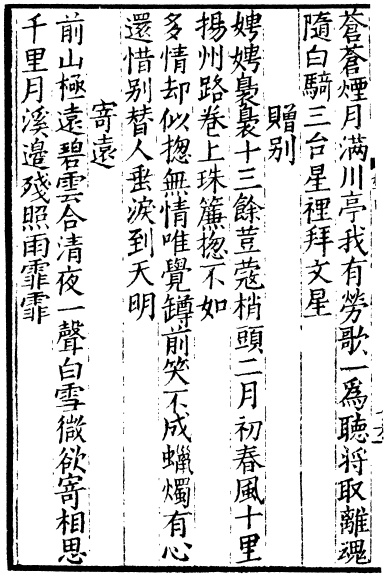 蒼蒼煙月滿川亭我有勞歌一爲聽将取離魂
隨白騎三台星裡拜文星
贈別
娉娉褭褭十三餘荳蔻梢頭二月初春風十里
揚州路卷上珠簾揔不如
多情却似揔無情唯覺罇前笑不成蠟燭有心
還惜别替人垂淚到天明
寄遠
前山極遠碧雲合清夜一聲白雪微欲寄相思
千里月溪邊殘照雨霏霏